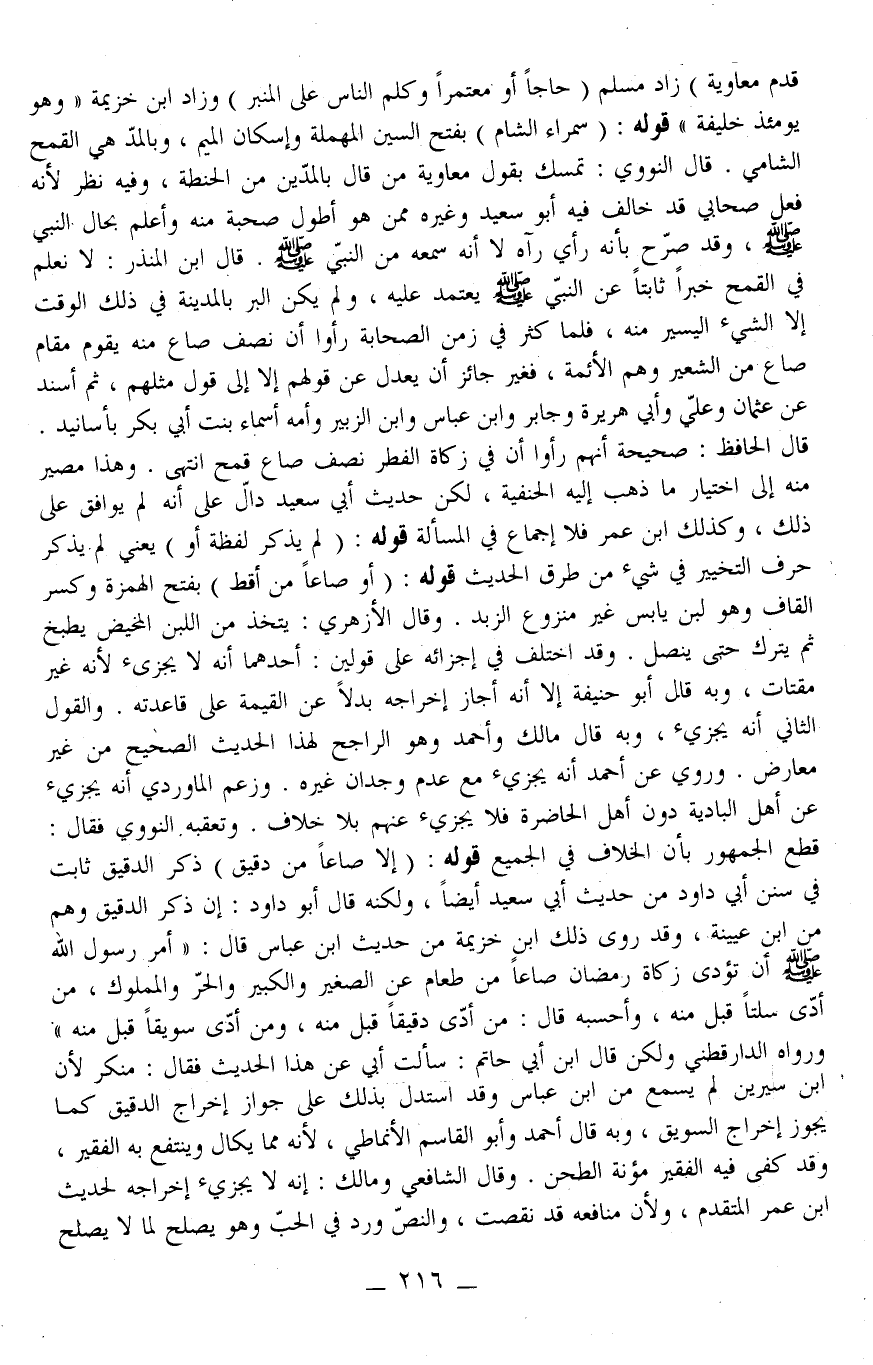 قدم معاوية ) زاد مسلم ( حاجاً أو معتمراً وكلم الناس على المنبر ) وزاد ابن خزيمة « وهو
يومئذ خليفة » قوله : ( سمراء الشام ) بفتح السين المهملة وإسكان الميم ، وبالمدّ هي القمح
الشامي . قال النووي : تمسك بقول معاوية من قال بالمدّين من الحنطة ، وفيه نظر لأنه
فعل صحابي قد خالف فيه أبو سعيد وغيره ممن هو أطول صحبة منه وأعلم بحال النبي
ﷺ ، وقد صرّح بأنه رأي رآه لا أنه سمعه من النبيّ ﷺ . قال ابن المنذر : لا نعلم
في القمح خبراً ثابتاً عن النبيّ ﷺ يعتمد عليه ، ولم يكن البر بالمدينة في ذلك الوقت
إلا الشيء اليسير منه ، فلما كثر في زمن الصحابة رأوا أن نصف صاع منه يقوم مقام
صاع من الشعير وهم الأئمة ، فغير جائز أن يعدل عن قولهم إلا إلى قول مثلهم ، ثم أسند
عن عثمان وعليّ وأبي هريرة وجابر وابن عباس وابن الزبير وأمه أسماء بنت أبي بكر بأسانيد .
قال الحافظ : صحيحة أنهم رأوا أن في زكاة الفطر نصف صاع قمح انتهى . وهذا مصير
منه إلى اختيار ما ذهب إليه الحنفية ، لكن حديث أبي سعيد دالّ على أنه لم يوافق على
ذلك ، وكذلك ابن عمر فلا إجماع في المسألة قوله : ( لم يذكر لفظة أو ) يعني لم يذكر
حرف التخيير في شيء من طرق الحديث قوله : ( أو صاعاً من أقط ) بفتح الهمزة وكسر
القاف وهو لبن يابس غير منزوع الزبد . وقال الأزهري : يتخذ من اللبن المخيض يطبخ
ثم يترك حتى ينصل . وقد اختلف في إجزائه على قولين : أحدهما أنه لا يجزىء لأنه غير
مقتات ، وبه قال أبو حنيفة إلا أنه أجاز إخراجه بدلاً عن القيمة على قاعدته . والقول
الثاني أنه يجزيء ، وبه قال مالك وأحمد وهو الراجح لهذا الحديث الصحيح من غير
معارض . وروي عن أحمد أنه يجزيء مع عدم وجدان غيره . وزعم الماوردي أنه يجزيء
عن أهل البادية دون أهل الحاضرة فلا يجزيء عنهم بلا خلاف . وتعقبه النووي فقال :
قطع الجمهور بأن الخلاف في الجميع قوله : ( إلا صاعاً من دقيق ) ذكر الدقيق ثابت
في سنن أبي داود من حديث أبي سعيد أيضاً ، ولكنه قال أبو داود : إن ذكر الدقيق وهم
من ابن عيينة ، وقد روى ذلك ابن خزيمة من حديث ابن عباس قال : « أمر رسول الله
ﷺ أن تؤدى زكاة رمضان صاعاً من طعام عن الصغير والكبير والحرّ والمملوك ، من
أدّى سلتاً قبل منه ، وأحسبه قال : من أدّى دقيقاً قبل منه ، ومن أدّى سويقاً قبل منه »
ورواه الدارقطني ولكن قال ابن أبي حاتم : سألت أبي عن هذا الحديث فقال : منكر لأن
ابن سيرين لم يسمع من ابن عباس وقد استدل بذلك على جواز إخراج الدقيق كمـا
يجوز إخراج السويق ، وبه قال أحمد وأبو القاسم الأنماطي ، لأنه مما يكال وينتفع به الفقير ،
وقد كفى فيه الفقير مؤنة الطحن . وقال الشافعي ومالك : إنه لا يجزيء إخراجه لحديث
ابن عمر المتقدم ، ولأن منافعه قد نقصت ، والنصّ ورد في الحبّ وهو يصلح لما لا يصلح
ــ ٢١٦ ــ